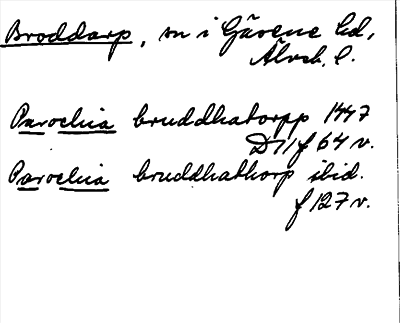 Broddarp, sn i Gäsene hd,
Älvsb. l.
Parochia bruddhatorpp 1447
D 11 f 64 v.
Parochia bruddhathorp ibid.
f 127 v.